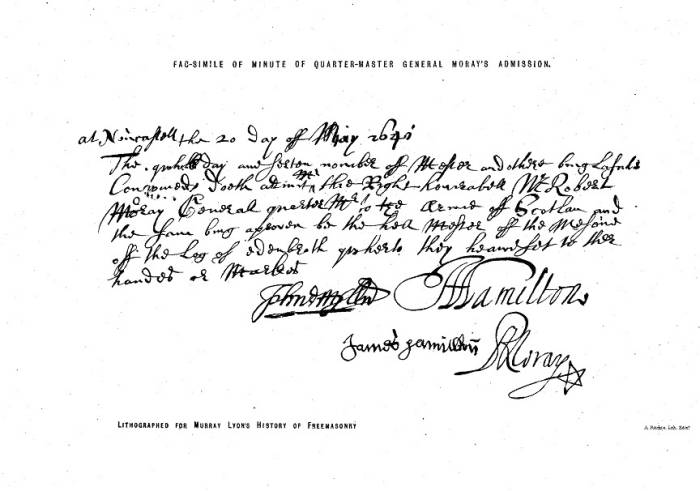 FAC-SIMILE OF MINUTE OF QUARTER-MASTER GENERAL MORAY'S ADMISSION.
at Neucastell the 20 day off May 1641
The quhilk day ane serten nomber off Mester and othere being lafule
Convened doeth admit Mr the Right honerabell Mr Robert
Moray General quarter Mr to the Armie off Scotlan and
the same bing aproven be the hell Mester off the Mesone
off the Log off Edenbroth quherto they heave set to ther
handes or Markes
Johne Mylln AHamilton
James Hamiltone RMoray
LITHOGRAPHED FOR MURRAY LYON'S HISTORY OF FREEMASONRY